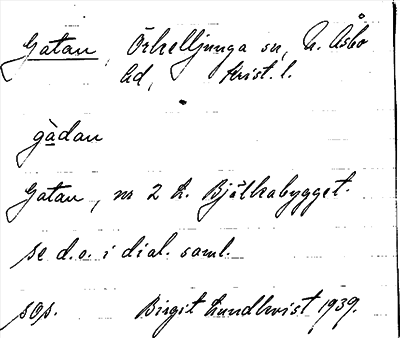 Gatan, Örkelljunga sn, N. Åsbo
hd, Krist. l.
gàdan
Gatan, nr 2 k. Bjälkabygget.
se d.o. i dial. saml.
sos. Birgit Lundkvist 1939.